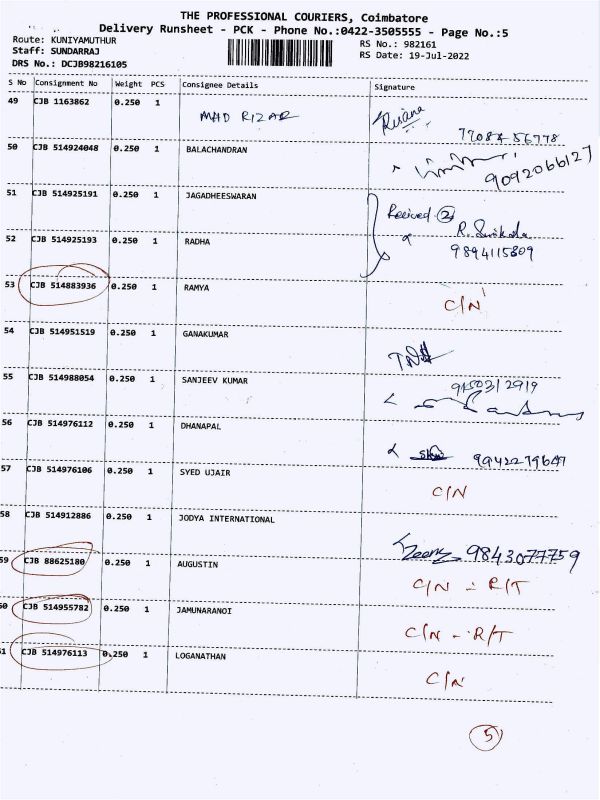 THE PROFESSIONAL COURIERS, Coimbatore
Delivery Runsheet - PCK - Phone No.:0422-3505555 - Page No.:5
Route: KUNIYAMUTHUR
RS No.: 982161
Staff: SUNDARRAJ
RS Date: 19-Jul-2022
DRS No.: DCJB98216105
S No Consignment No Weight PCS Consignee Details Signature
49 CJB 1163862 0.250 1 MAD RIZAR
77084 56778
50 CJB 514924048 0.250 1 BALACHANDRAN
9092066127
51 CJB 514925191 0.250 1 JAGADHEESWARAN
Received 2
52 CJB 514925193 0.250 1 RADHA
9894115809
53 CJB 514883936 0.250 1 RAMYA C/N
54 CJB 514951519 0.250 1 GANAKUMAR
55 CJB 514988054 0.250 1 SANJEEV KUMAR
56 CJB 514976112 0.250 1 DHANAPAL
57 CJB 514976106 0.250 1 SYED UJAIR C/N
58 CJB 514912886 0.250 1 JODYA INTERNATIONAL
9843077759
59 CJB 88625180 0.250 1 AUGUSTIN C/N - R/T
60 CJB 514955782 0.250 1 JAMUNARANOI C/N - R/T
61 CJB 514976113 0.250 1 LOGANATHAN C/N
5